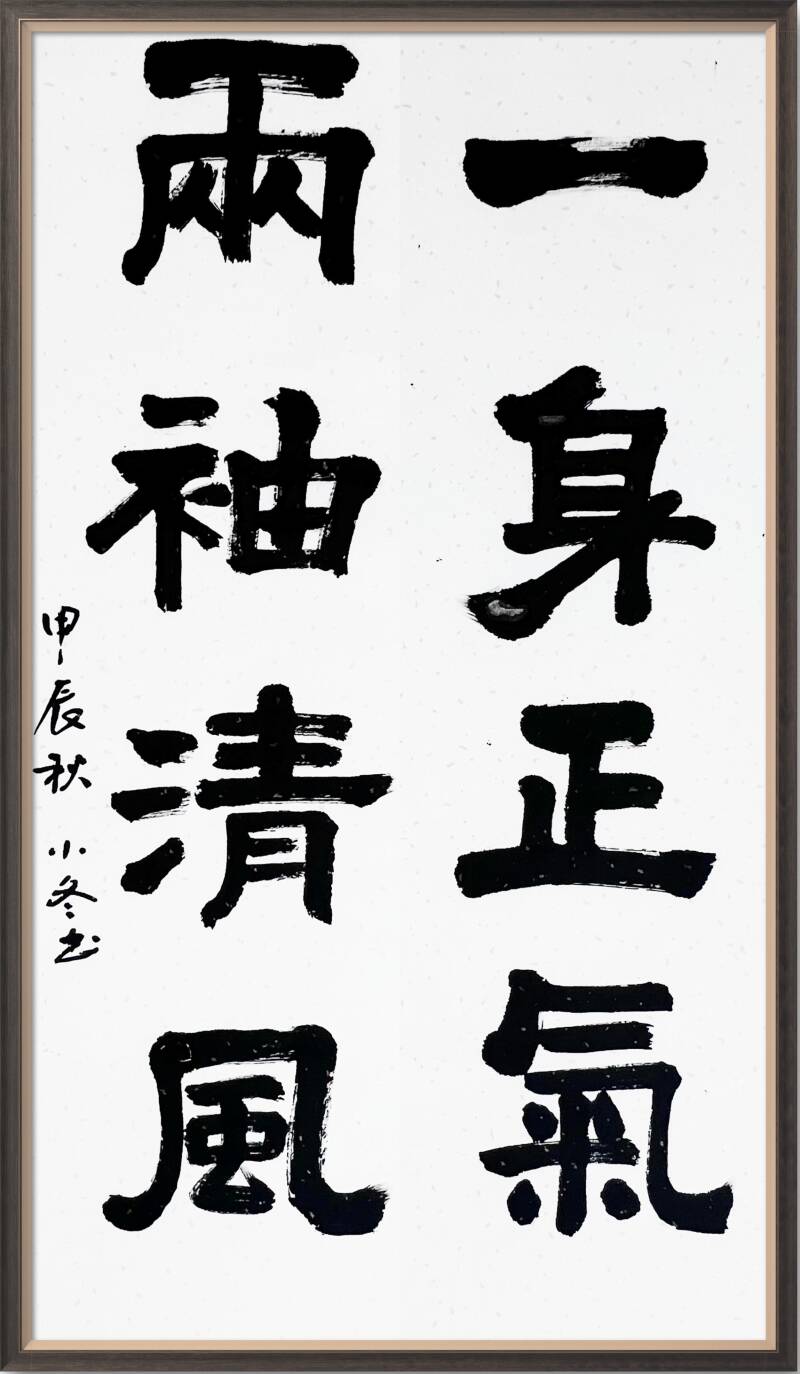 一身正氣
兩袖清風
甲辰秋 小冬书